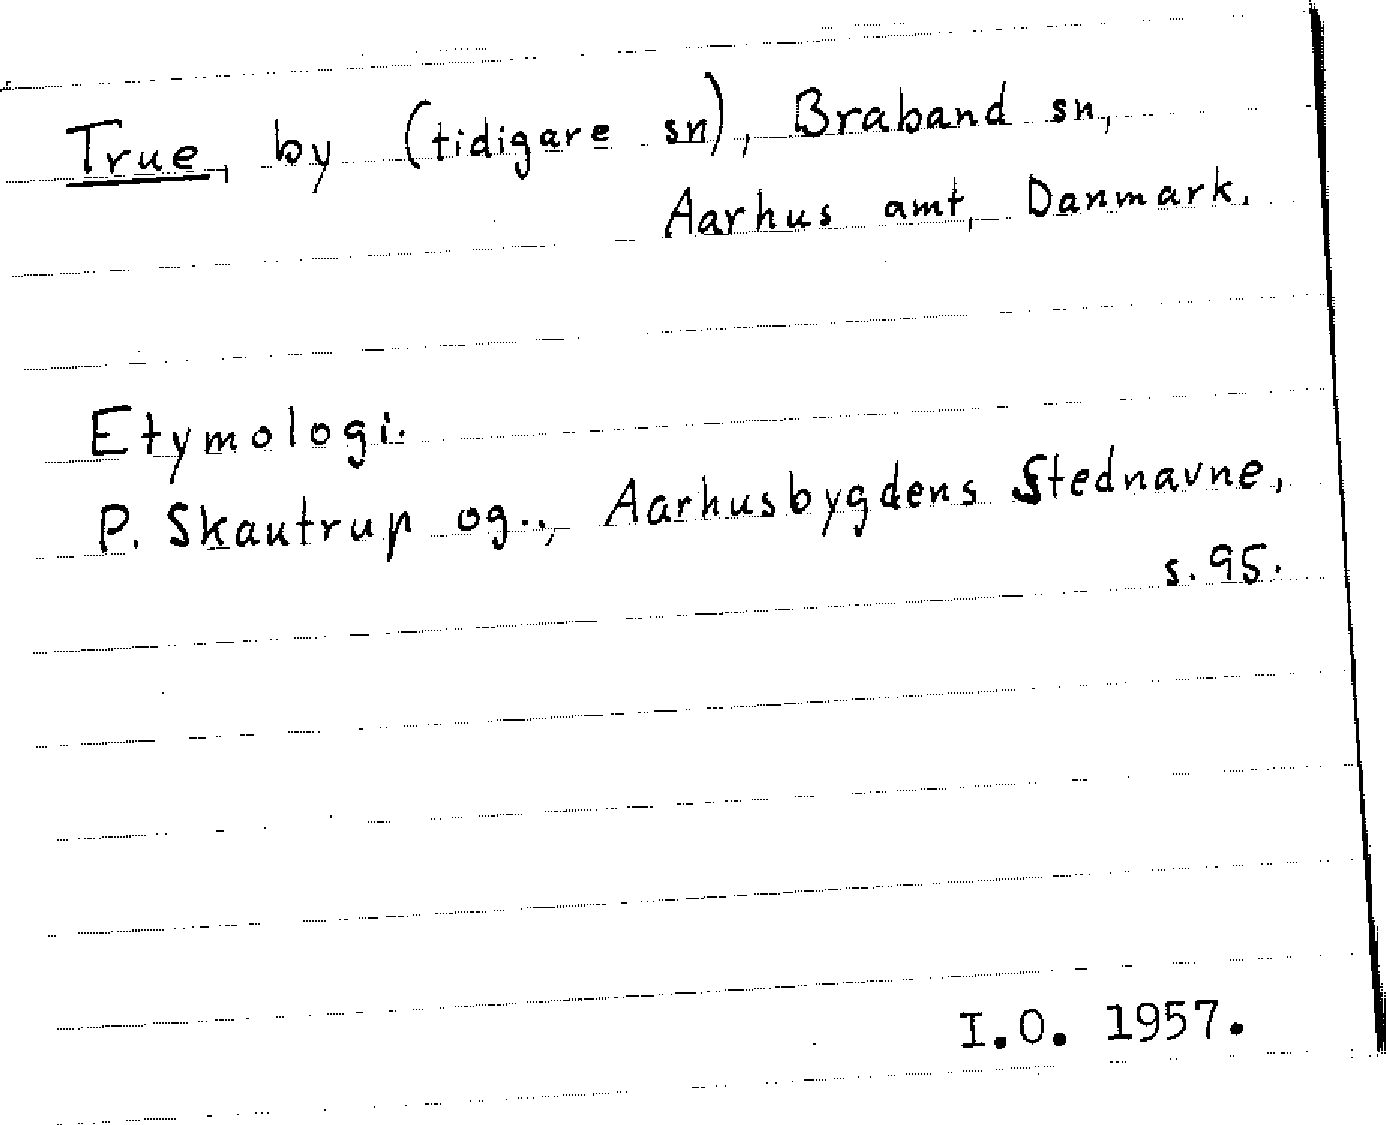 True, by (tidigare sn), Braband sn,
Aarhus amt, Danmark.
Etymologi.
P. Skautrup og., Aarhusbygdens Stednavne,
s. 95.
I.O. 1957.